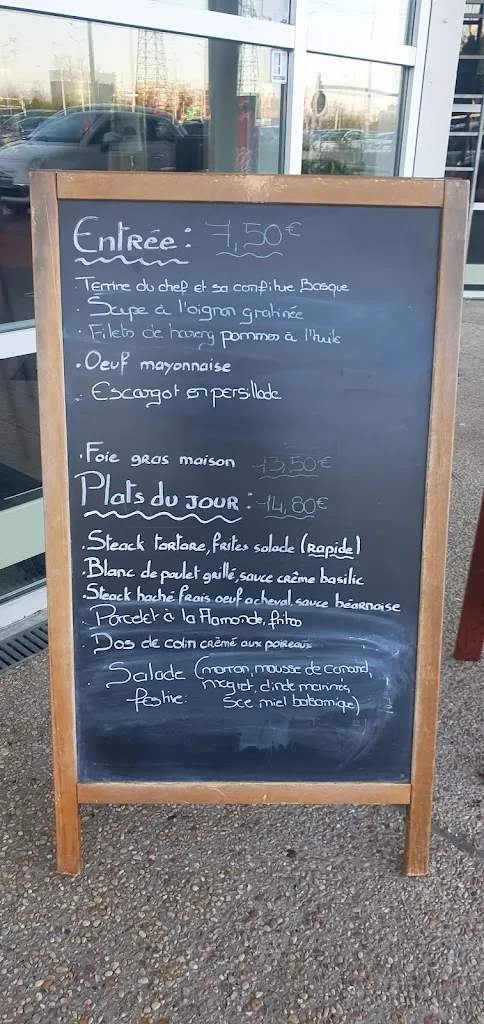 Entrée : 7,50€
· Terrine du chef et sa confiture Basque
· Soupe à l'oignon gratinée
· Filets de hareng pommes à l'huile
· Oeuf mayonnaise
· Escargot en persillade
· Foie gras maison 13,50€
Plats du JOUR : 14,80€
· Steack tartare, frites salade (rapide)
· Blanc de poulet grillé, sauce crème basilic
· Steack haché frais oeuf acheval, sauce béarnaise
· Porcelet à la Flamande, frites
· Dos de colin crèmé aux poireaux
· Salade (marron, mousse de canard,
magret, dinde marinés,
festive: sce miel balsamique)